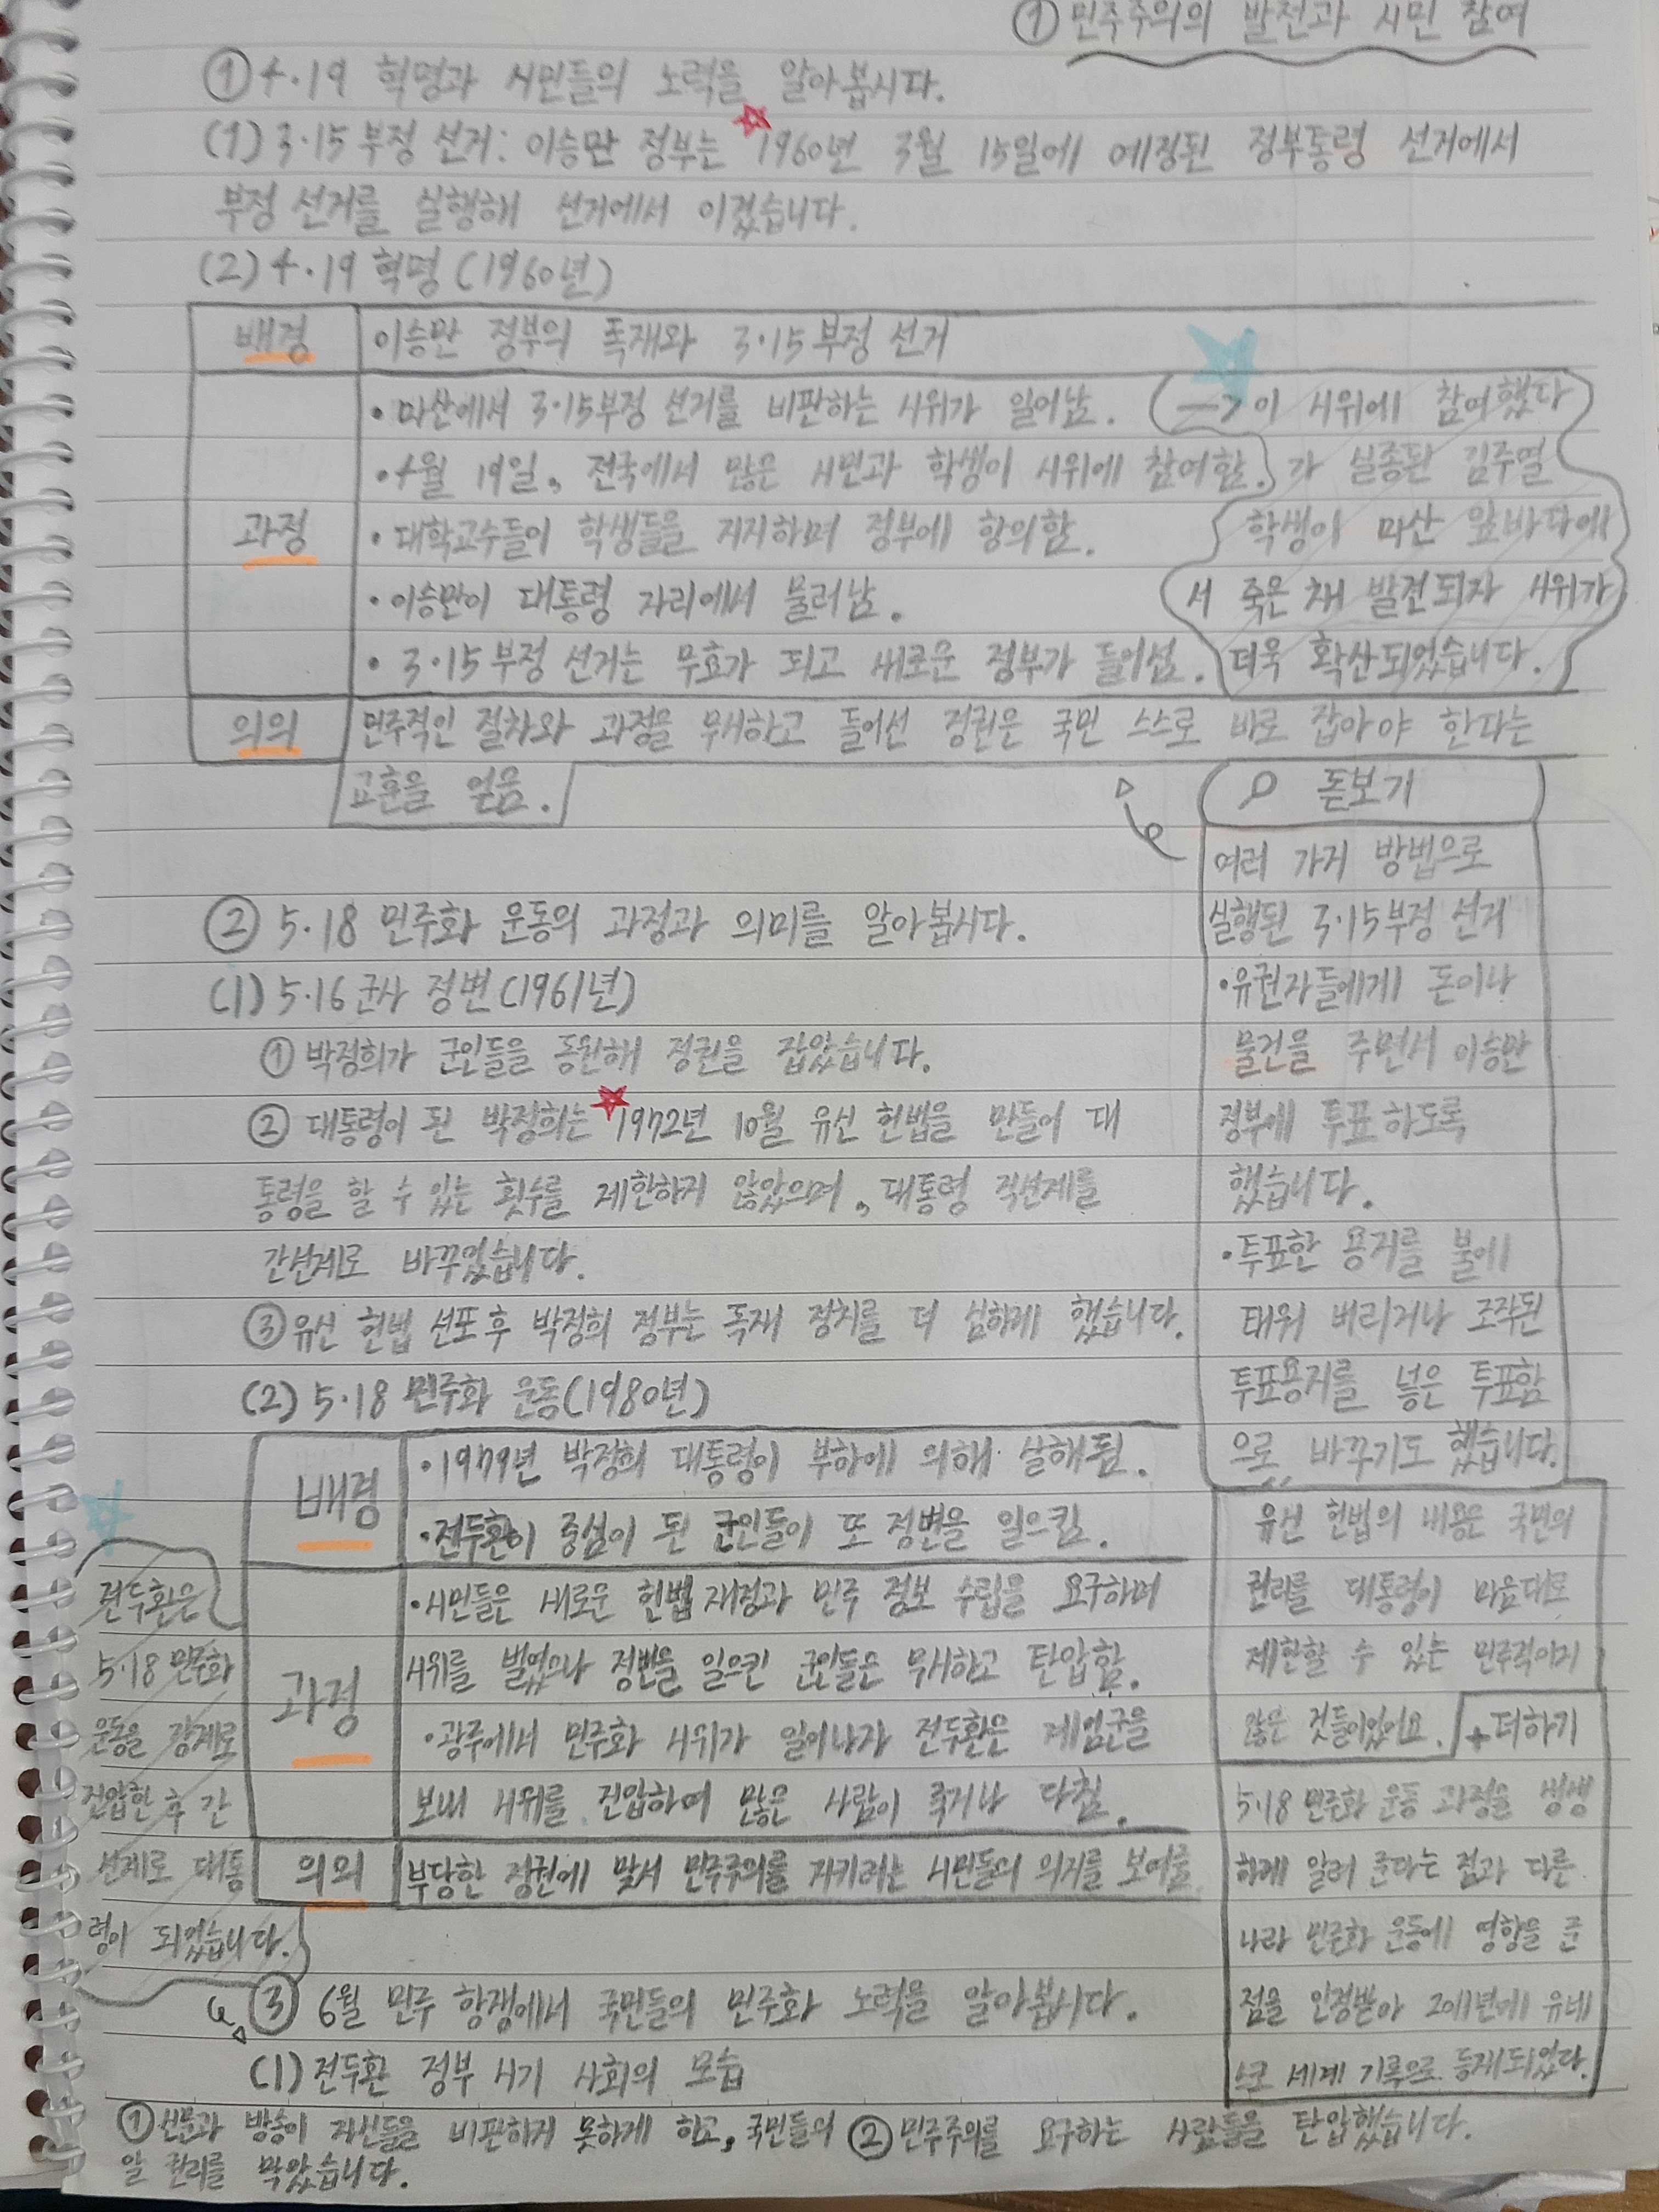 ① 민주주의의 발전과 시민 참여
① 4·19 혁명과 시민들의 노력을 알아봅시다.
(1) 3·15 부정 선거: 이승만 정부는 1960년 3월 15일에 예정된 정부통령 선거에서
부정 선거를 실행해 선거에서 이겼습니다.
(2) 4·19 혁명(1960년)
배경
이승만 정부의 독재와 3·15 부정 선거
과정
• 마산에서 3·15부정 선거를 비판하는 시위가 일어남.
• 4월 19일, 전국에서 많은 시민과 학생이 시위에 참여함.
• 대학교수들이 학생들을 지지하며 정부에 항의함.
• 이승만이 대통령 자리에서 물러남.
• 3·15 부정 선거는 무효가 되고 새로운 정부가 들어섬.
—> 이 시위에 참여했다
가 실종된 김주열
학생이 마산 앞바다에
서 죽은 채 발견되자 시위가
더욱 확산되었습니다.
의의
민주적인 절차와 과정을 무시하고 들어선 정권은 국민 스스로 바로 잡아야 한다는
교훈을 얻음.
돋보기
여러 가지 방법으로
실행된 3·15부정 선거
• 유권자들에게 돈이나
물건을 주면서 이승만
정부에 투표하도록
했습니다.
• 투표한 용지를 불에
태워 버리거나 조작된
투표용지를 넣은 투표함
으로 바꾸기도 했습니다.
② 5·18 민주화 운동의 과정과 의미를 알아봅시다.
(1) 5·16 군사 정변(1961년)
① 박정희가 군인들을 동원해 정권을 잡았습니다.
② 대통령이 된 박정희는 1972년 10월 유신 헌법을 만들어 대
통령을 할 수 있는 횟수를 제한하지 않았으며, 대통령 직선제를
간선제로 바꾸었습니다.
③ 유신 헌법 선포 후 박정희 정부는 독재 정치를 더 심하게 했습니다.
(2) 5·18 민주화 운동(1980년)
배경
• 1979년 박정희 대통령이 부하에 의해 살해됨.
• 전두환이 중심이 된 군인들이 또 정변을 일으킴.
과정
• 시민들은 새로운 헌법 재정과 민주 정보 수립을 요구하며
시위를 벌였으나 정변을 일으킨 군인들은 무시하고 탄압함.
• 광주에서 민주화 시위가 일어나자 전두환은 계엄군을
보내 시위를 진압하여 많은 사람이 죽거나 다침.
의의
부당한 정권에 맞서 민주주의를 지키려는 시민들의 의지를 보여줌
전두환은
5·18 민주화
운동을 강제로
진압한 후 간
선제로 대통
령이 되었습니다.
유신 헌법의 내용은 국민의
권리를 대통령이 마음대로
제한할 수 있는 민주적이지
않은 것들이었어요.
+더하기
5·18 민주화 운동 과정을 생생
하게 알려 준다는 점과 다른
나라 민주화 운동에 영향을 준
점을 인정받아 2011년에 유네
스코 세계 기록으로 등재되었다.
③ 6월 민주 항쟁에서 국민들의 민주화 노력을 알아봅시다.
(1) 전두환 정부 시기 사회의 모습
① 신문과 방송이 자신들을 비판하지 못하게 하고, 국민들의
알 권리를 막았습니다.
② 민주주의를 요구하는 사람들을 탄압했습니다.